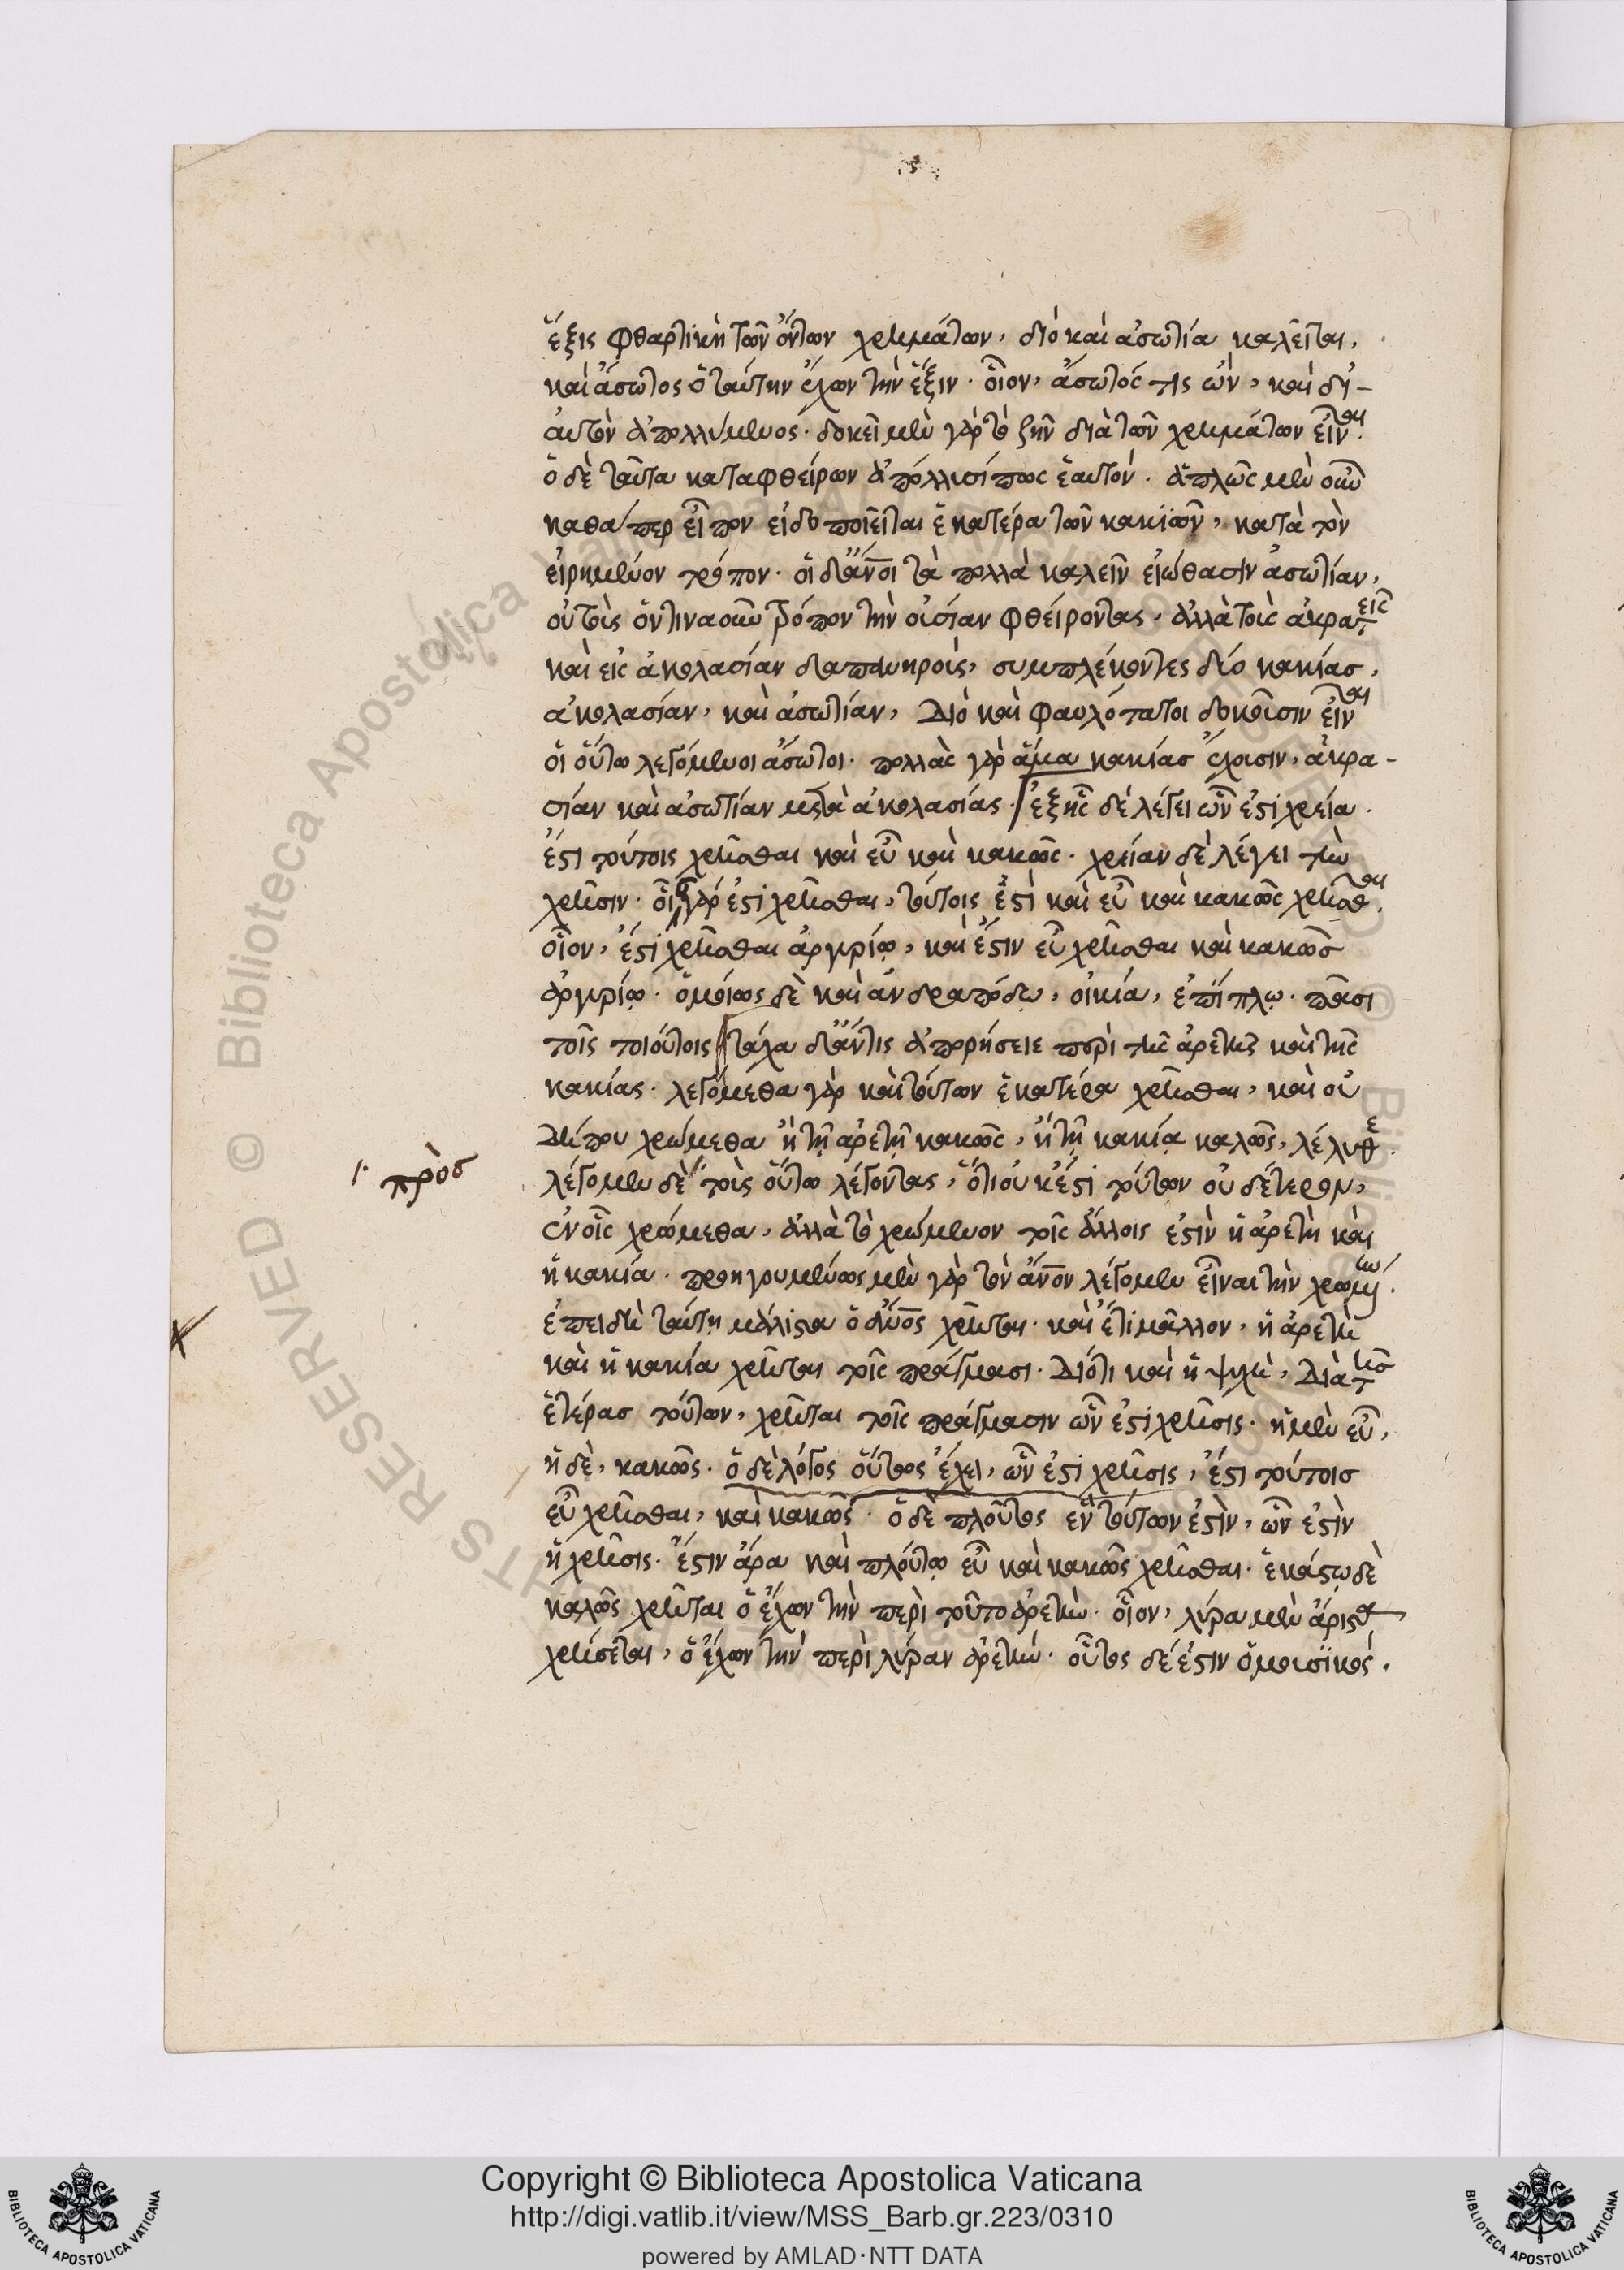 ἕξις φθαρτικὴ τῶν ὄντων χρημάτων, διὸ καὶ ἀσωτία καλεῖται,
καὶ ἄσωτος ὁ ταύτην ἔχων τὴν ἕξιν. οἷον, ἄσωτός τις ὢν, καὶ δι'
αὑτὸν ἀπολλύμενος. δοκεῖ μὲν γὰρ τὸ ζῆν διὰ τῶν χρημάτων εἶναι.
ὁ δὲ ταῦτα καταφθείρων ἀπόλλυσί πως ἑαυτόν. ἁπλῶς μὲν οὖν
καθάπερ εἶπον εἰδοποιεῖται ἑκατέρα τῶν κακιῶν, κατὰ τὸν
εἰρημένον τρόπον. οἱ δ' ἄνοι τὰ πολλὰ καλεῖν εἰώθασιν ἀσωτίαν,
οὐ τοὺς ὁντιναοῦν τρόπον τὴν οὐσίαν φθείροντας, ἀλλὰ τοὺς ἀκρατεῖς
καὶ εἰς ἀκολασίαν δαπανηροὺς, συμπλέκοντες δύο κακίας,
ἀκολασίαν, καὶ ἀσωτίαν, Διὸ καὶ φαυλότατοι δοκοῦσιν εἶναι
οἱ οὕτω λεγόμενοι ἄσωτοι. πολλὰς γὰρ ἅμα κακίας ἔχουσιν, ἀκρα-
σίαν καὶ ἀσωτίαν μετὰ ἀκολασίας. ἑξῆς δὲ λέγει ὧν ἐστὶ χρεία.
ἔστι τούτοις χρῆσθαι καὶ εὖ καὶ κακῶς. χρείαν δὲ λέγει τὴν
χρῆσιν. οἷς γάρ ἐστι χρῆσθαι, τούτοις ἐστὶ καὶ εὖ καὶ κακῶς χρῆσθαι.
οἷον, ἔστι χρῆσθαι ἀργυρίῳ, καὶ ἔστιν εὖ χρῆσθαι καὶ κακῶς
ἀργυρίῳ. ὁμοίως δὲ καὶ ἀνδραπόδῳ, οἰκίᾳ, ἐπίπλῳ. πᾶσι
τοῖς τοιούτοις τάχα δ' ἄν τις ἀπορήσειε περὶ τῆς ἀρετῆς καὶ τῆς
κακίας. λεγόμεθα γὰρ καὶ τούτων ἑκατέρᾳ χρῆσθαι, καὶ οὐ
δήπου χρώμεθα ἢ τῇ ἀρετῇ κακῶς, ἢ τῇ κακίᾳ καλῶς,
λέγομεν δὲ τοὺς οὕτω λέγοντας, ὅτι οὐκ ἔστι τούτων οὐδέτερον,
ἐν οἷς χρώμεθα, ἀλλὰ τὸ χρώμενον τοῖς ἄλλοις ἐστὶν ἡ ἀρετὴ καὶ
ἡ κακία. προηγουμένως μὲν γὰρ τὸν ἄνον λέγομεν εἶναι τὸν χρώμενον.
ἐπειδὴ ταύτῃ μάλιστα ὁ ἄνος χρῆται. καὶ ἔτι μᾶλλον, ἡ ἀρετὴ
καὶ ἡ κακία χρῆται τοῖς πράγμασι. Διότι καὶ ἡ ψυχὴ, Διὰ τῆς
ἑτέρας τούτων, χρῆται τοῖς πράγμασιν ὧν ἐστὶ χρῆσις. ἡ μὲν εὖ,
ἡ δὲ, κακῶς. ὁ δὲ λόγος οὕτως ἔχει, ὧν ἐστὶ χρῆσις, ἔστι τούτοις
εὖ χρῆσθαι, καὶ κακῶς. ὁ δὲ πλοῦτος ἓν τούτων ἐστὶν, ὧν ἐστὶν
ἡ χρῆσις. ἔστιν ἄρα καὶ πλούτῳ εὖ καὶ κακῶς χρῆσθαι. ἑκάστῳ δὲ
καλῶς χρῆται ὁ ἔχων τὴν περὶ τοῦτο ἀρετήν. οἷον, λύρᾳ μὲν ἄριστα
χρήσεται, ὁ ἔχων τὴν περὶ λύραν ἀρετήν. οὗτος δέ ἐστιν ὁ μουσικός.
πρὸς
Copyright © Biblioteca Apostolica Vaticana
http://digi.vatlib.it/view/MSS_Barb.gr.223/0310
powered by AMLAD·NTT DATA
BIBLIOTECA APOSTOLICA VATICANA
BIBLIOTECA APOSTOLICA VATICANA